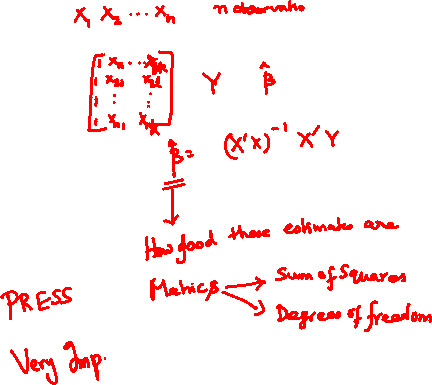 X₁ X₂ ... Xₙ n observatio
1 x₁₁ ... x₁ₖ
1 x₂₁ x₂ₖ Y β̂
1 : :
1 xₙ₁ xₙₖ
β̂ = (X'X)⁻¹ X'Y
How good these estimates are
Metrics Sum of Squares
PRESS Degrees of freedom
Very Imp.